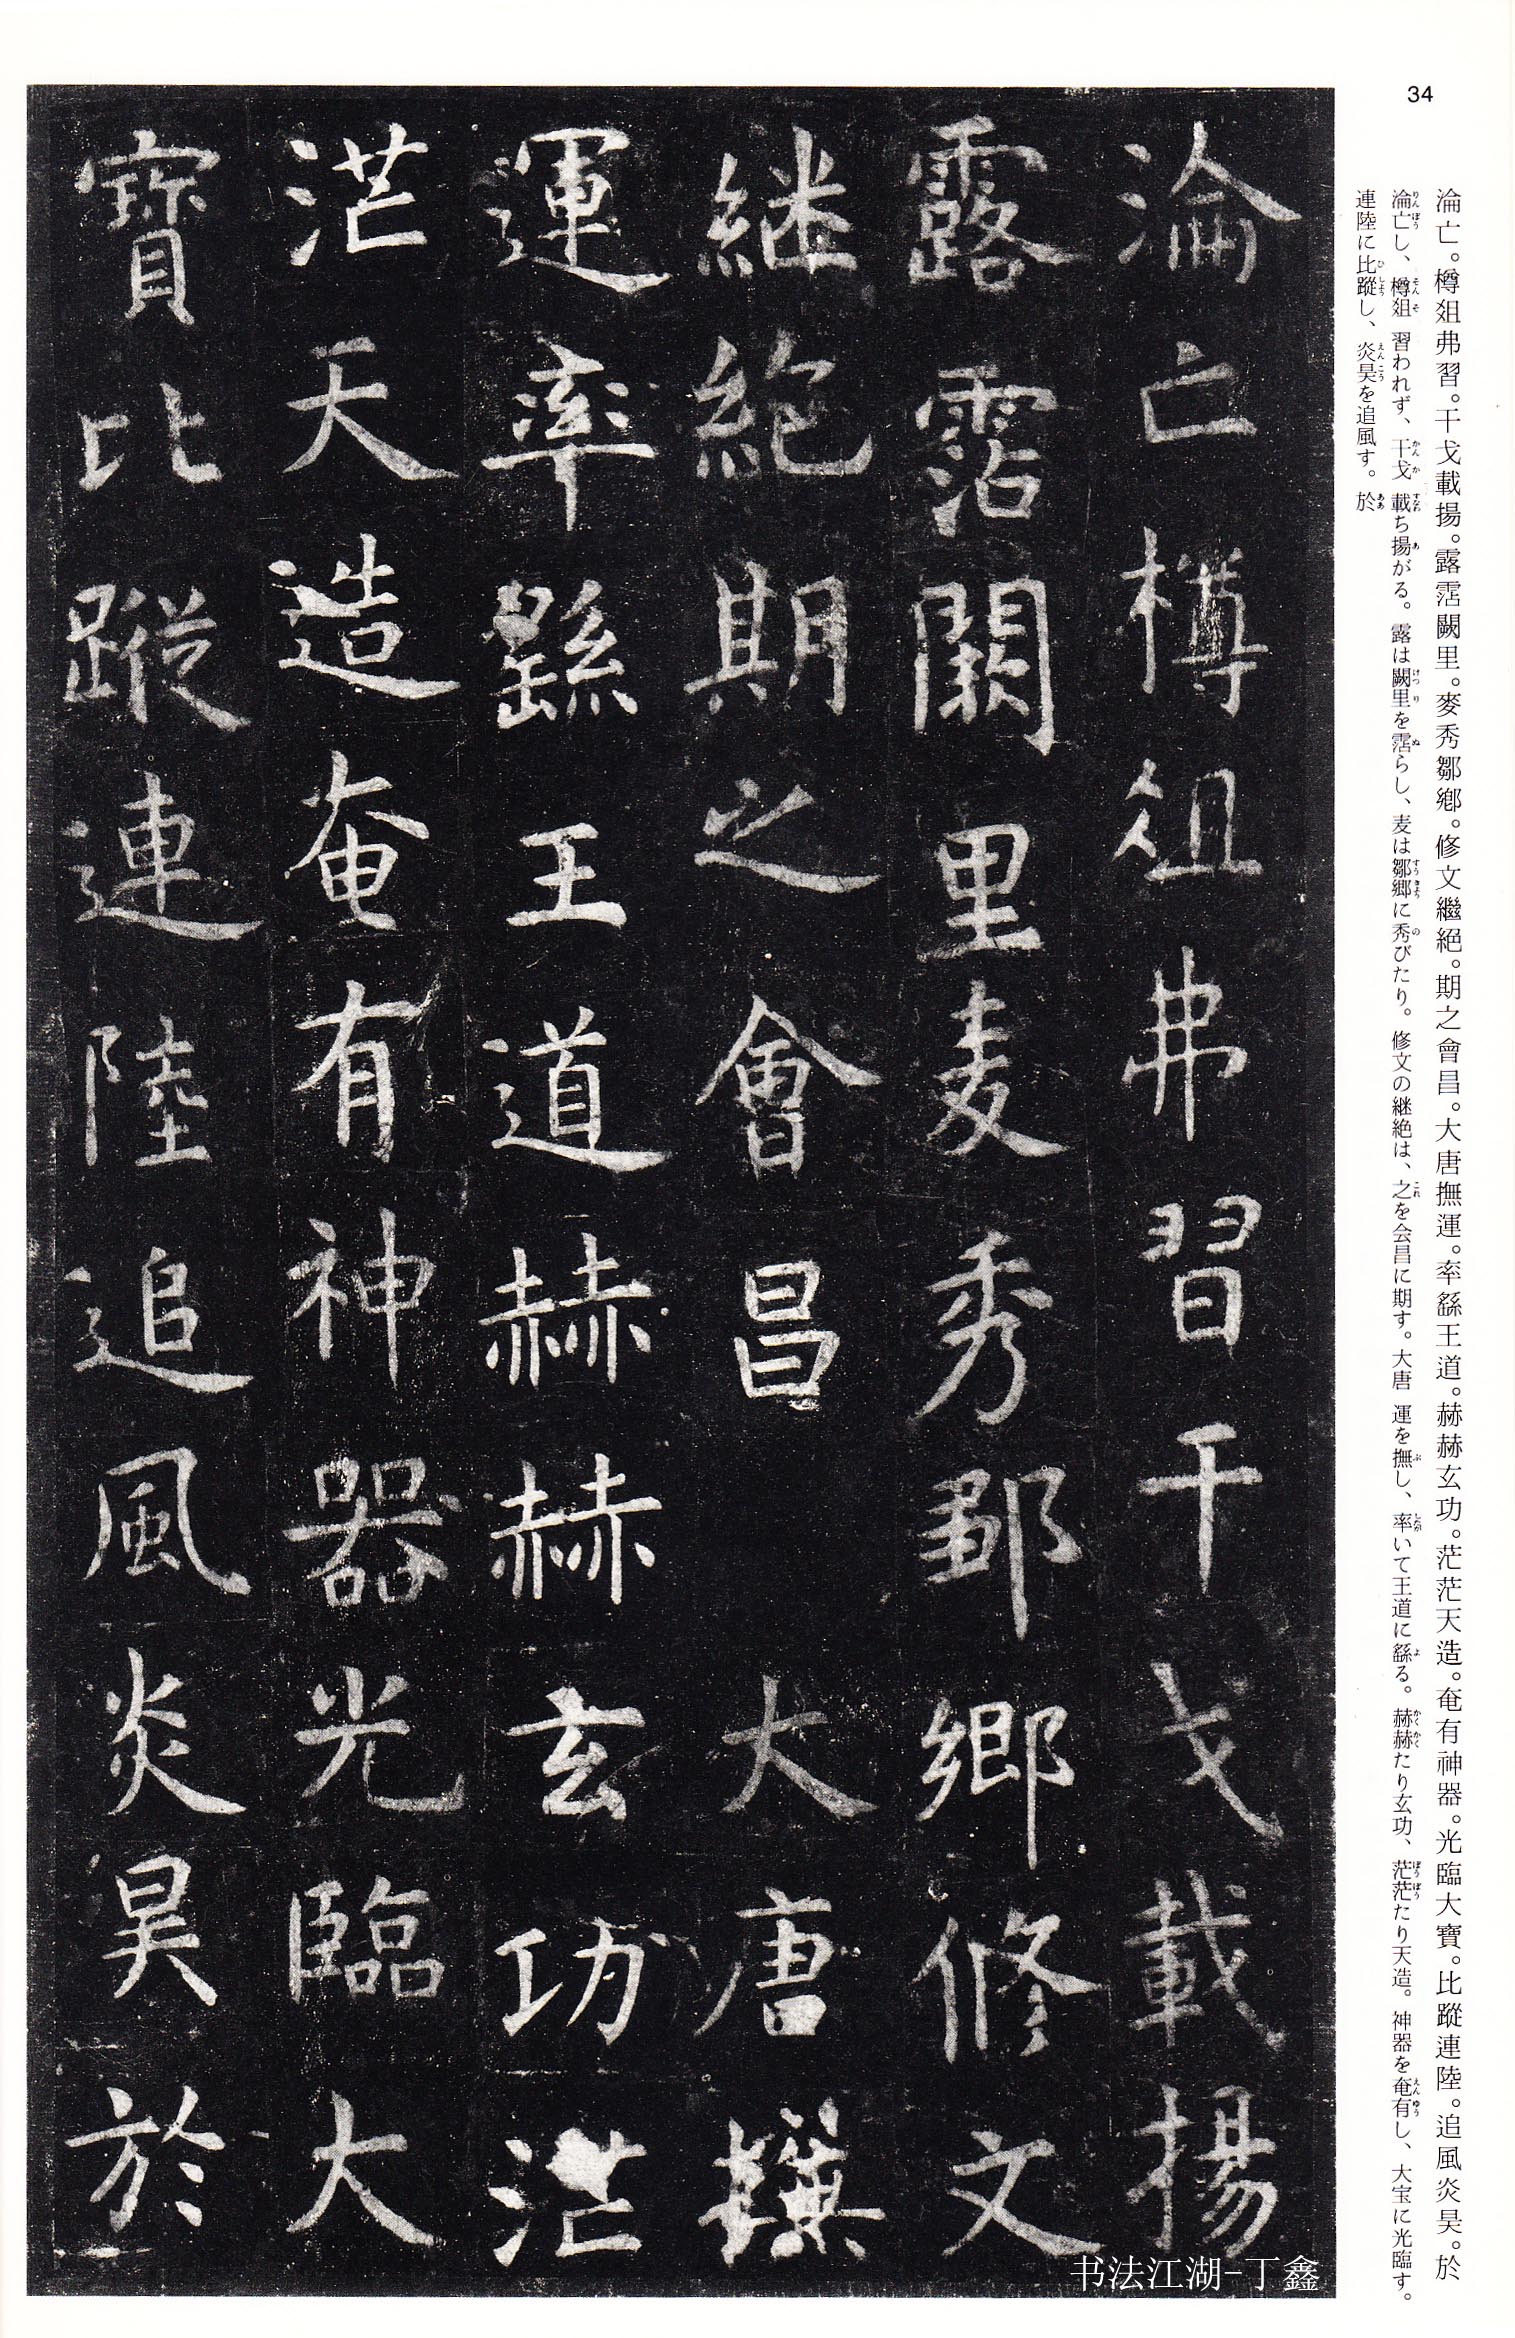 34
淪亡。樽爼弗習。干戈載揚。露霑闕里。麥秀鄒鄕。修文繼絕。期之會昌。大唐撫運。率繇王道。赫赫玄功。茫茫天造。奄有神器。光臨大寶。比蹤連陸。追風炎昊。於
淪亡し、樽爼 習われず、干戈 載ち揚がる。露は闕里を霑らし、麦は鄒郷に秀びたり。修文の継絶は、之を会昌に期す。大唐 運を撫し、率いて王道に繇る。赫赫たり玄功、茫茫たり天造。神器を奄有し、大宝に光臨す。
連陸に比蹤し、炎昊を追風す。於
淪亡樽爼弗習干戈載揚
露霑闕里麦秀鄒鄉修文
継絶期之會昌 大唐撫
運率繇王道赫赫玄功茫
茫天造奄有神器光臨大
寶比蹤連陸追風炎昊於
书法江湖-丁鑫